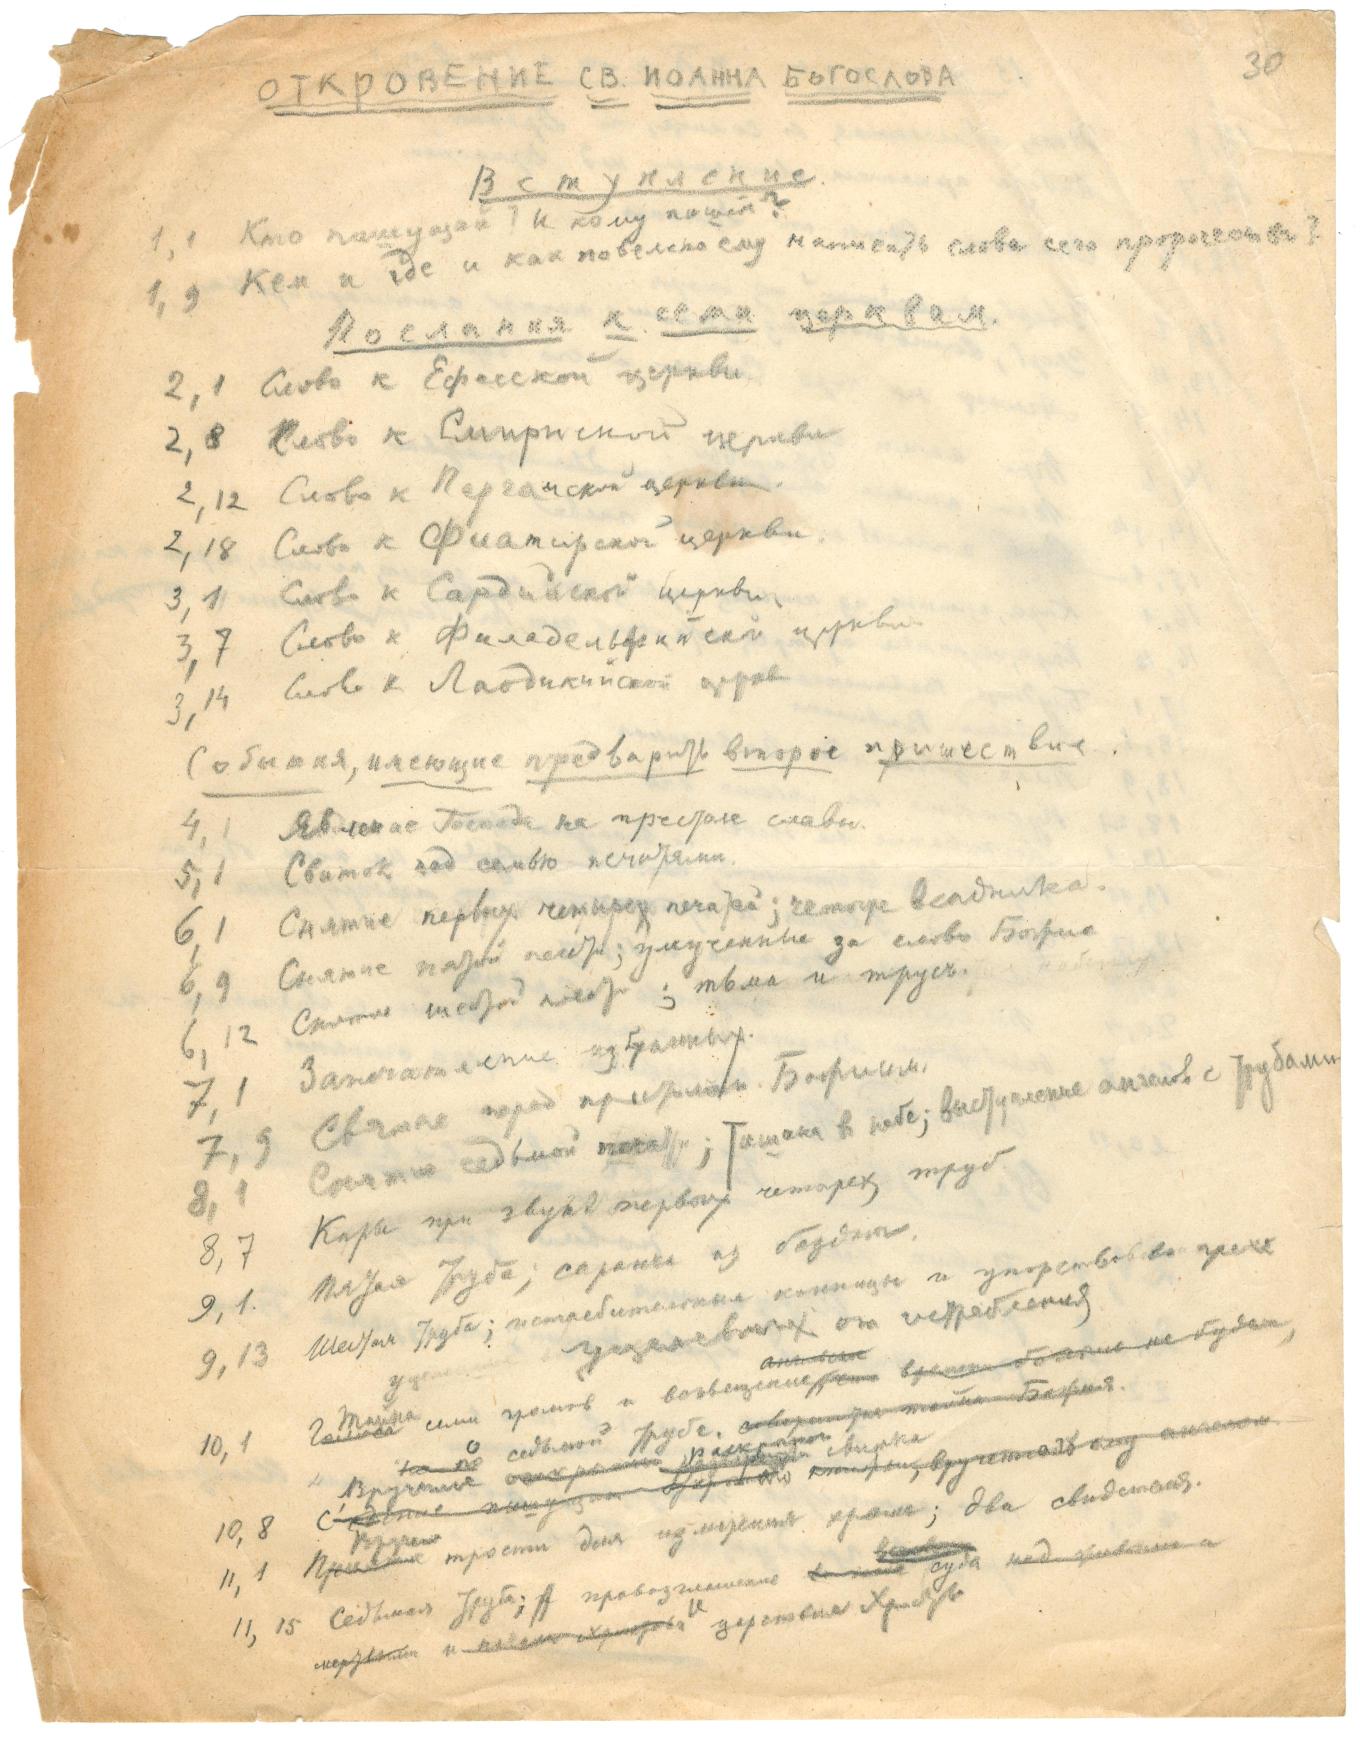 30
ОТКРОВЕНИЕ СВ. ИОАННА БОГОСЛОВА
Вступление.
1,1 Кто пишущий? И кому пишет?
1,9 Кем и где и как повелено ему написать слова сего пророчества?
Послания к семи церквам.
2,1 Слово к Ефесской церкви
2,8 Слово к Смирнской церкви
2,12 Слово к Пергамской церкви.
2,18 Слово к Фиатирской церкви.
3,1 Слово к Сардийской церкви
3,7 Слово к Филадельфийской церкви
3,14 Слово к Лаодикийской церкви
События, имеющие предварить второе пришествие.
4,1 Явление Господа на престоле славы.
5,1 Свиток под семью печатями.
6,1 Снятие первых четырех печатей; четыре всадника.
6,9 Снятие пятой печати; умученные за слово Божие
6,12 Снятие шестой печати; тьма и трус.
7,1 Запечатление избранных.
7,9 Святые перед престолом Божиим.
8,1 Снятие седьмой печати; Тишина в небе; выступление ангелов с трубами
8,7 Кары при звуке первых четырех труб
9,1. Пятая труба; саранча из бездны.
9,13 Шестая труба; истребительные конницы и упорство во грехе
уцелевших от истребления
ангелом
10,1 Голоса Тайна семи громов и возвещение времени больше не будет,
о седьмой трубе. совершится тайна Божия.
Вручение раскрытого свитка
10,8 вручает ему ангелом
Вручение
11,1 трости для измерения храма; два свидетеля.
11,15 Седьмая труба; провозглашение суда над живыми и
мертвыми и царствия Христова